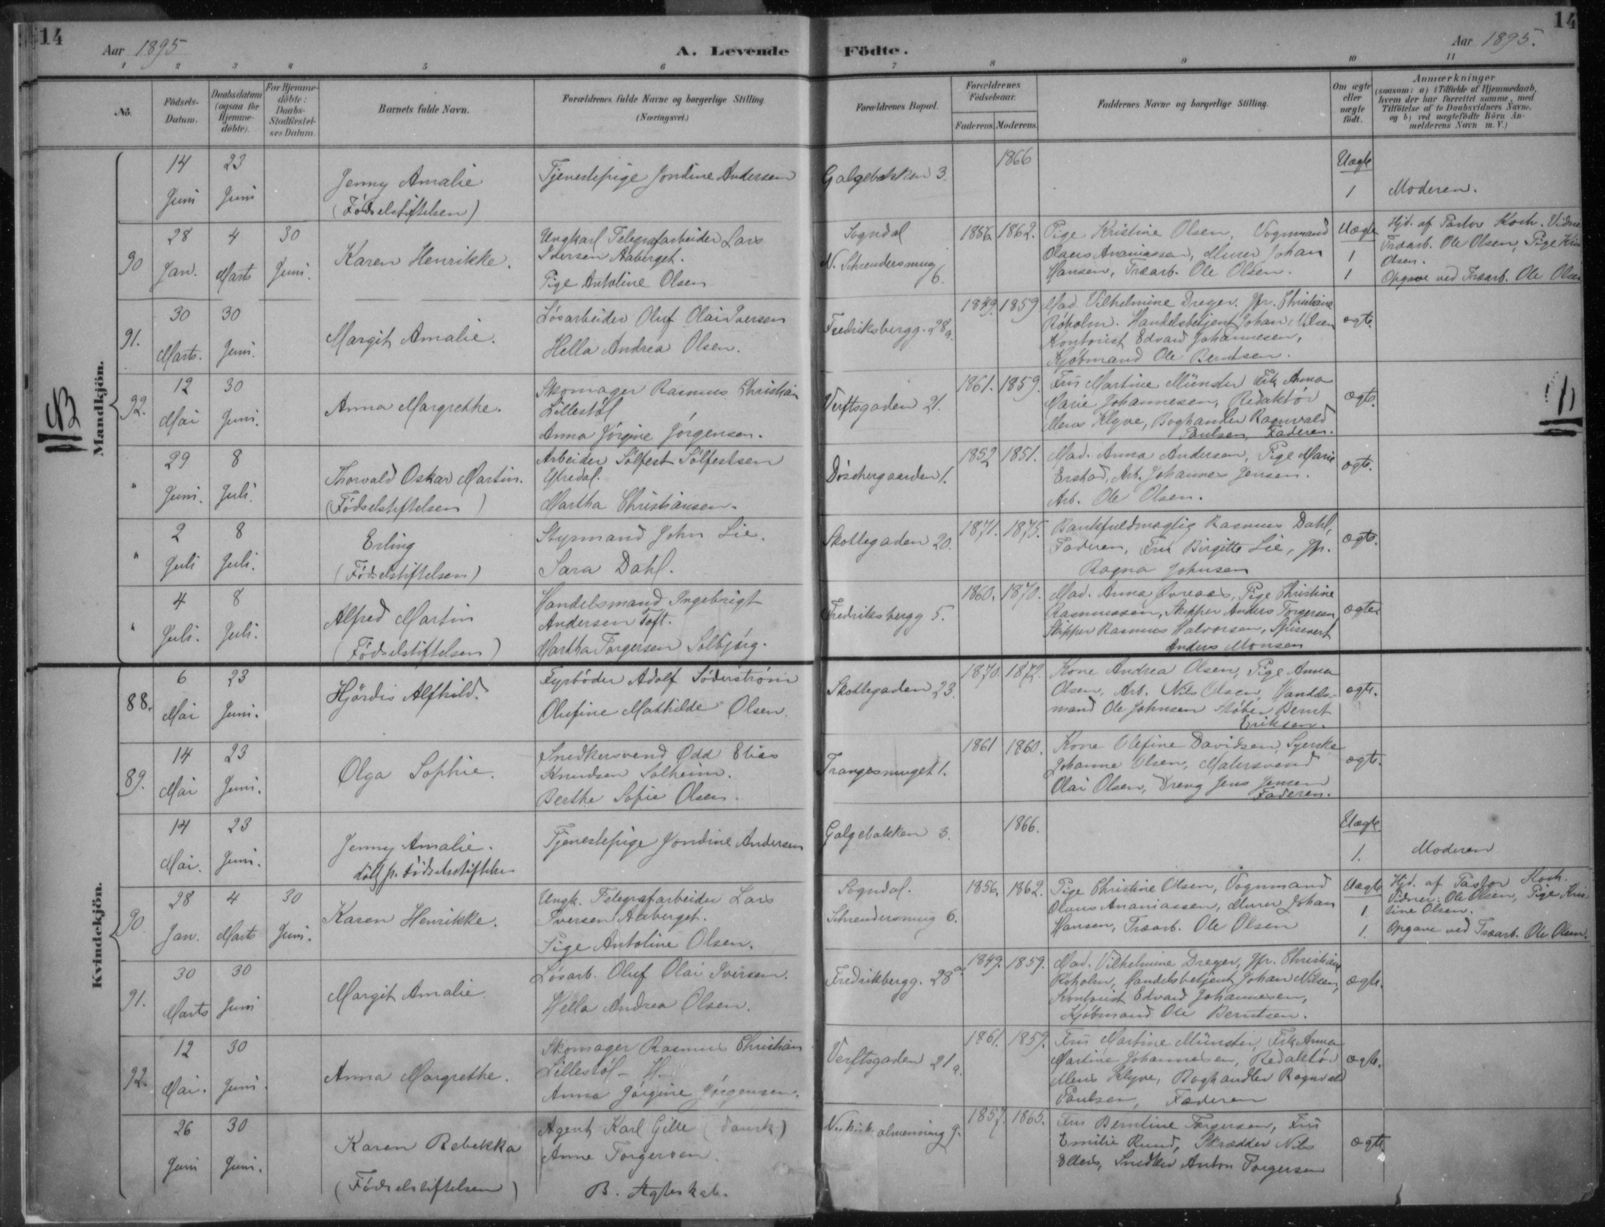 14
Aar 1895
A. Levende
Födte.
Aar 1895.
14
1 2 3 4 5 6 7 8 9 10 11
No.
Födsels-Datum.
Daabsdatum (ogsaa for Hjemme-döbte).
For Hjemme-döbte: Daabs-Stadfæstelses Datum.
Barnets fulde Navn.
Forældrenes fulde Navne og borgerlige Stilling (Næringsvei.)
Forældrenes Bopæl.
Forældrenes Födselsaar.
Faderens. Moderens.
Faddernes Navne og borgerlige Stilling.
Om ægte eller uægte födt.
Anmærkninger
Mandkjön.
14 Juni
23 Juni
Jenny Amalie
(Födselstiftelsen)
Tjenestepige Jondine Andersen
Galgebakken 3.
1866
Uægte
1
Moderen.
90
28 Jan.
4 Marts
30 Juni.
Karen Henrikke.
Ungkarl Telegrafarbeider Lars
Iversen Aaberget.
Pige Antoline Olsen
Sogndal
N. Schrendersmug 6.
1856. 1862.
Pige Kristine Olsen, Vognmand
Olaus Ananiassen, Murer Johan
Hansen, Træarb. Ole Olsen.
Uægte
1
1
Hjd. af Pastor Koch. Vidne
Træarb. Ole Olsen, Pige Kri
Olsen.
Opgave ved Træarb. Ole Olsen
91.
30 Marts.
30 Juni.
Margit Amalie.
Lösarbeider Oluf Olai Iversen
Hella Andrea Olsen.
Fredriksbergg. 28a.
1849. 1859.
Mad. Vilhelmine Dreyer, Jfr. Christiane
Röholm. Handelsbetjent Johan Nilsen
Kontorist Edvard Johannesen,
Kjöbmand Ole Berntsen.
ægte.
92.
12 Mai
30 Juni.
Anna Margrethe.
Skomager Rasmus Christian
Lillestöl
Anna Jörgine Jörgensen.
Verftsgaden 21.
1861. 1859.
Frü Martine Münster, Frk. Anna
Marie Johannesen, Redaktör
Mens Klyve, Boghandler Ragnvald
Paulsen, Faderen.
ægte.
"
29 Juni.
8 Juli.
Thorvald Oskar Martin.
(Födselstiftelsen)
Arbeider Sölfest Sölfestsen
Ytredal.
Martha Christiansen.
Döschergaarden 1.
1852 1851.
Mad. Anna Andersen, Pige Marie
Erstad, Arb. Johannes Jensen.
Arb. Ole Olsen.
ægte.
"
2 Juli
8 Juli.
Erling
(Födselstiftelsen)
Styrmand John Lie.
Sara Dahl.
Skottegaden 20.
1871. 1875.
Bankfuldmægtig Rasmus Dahl,
Faderen, Frü Birgitte Lie, Jfr.
Ragna Johnsen
ægte.
"
4 Juli.
8 Juli.
Alfred Martin
(Födselstiftelsen)
Handelsmand Ingebrigt
Andersen Toft.
Martha Torgersen Solbjörg.
Fredriksbergg 5.
1860. 1870.
Mad. Anna Övreaas, Pige Christine
Rasmussen, Skipper Anders Torgersen
Skipper Rasmus Halvorsen,
Anders Monsen
ægte
Kvindekjön.
88.
6 Mai
23 Juni.
Hjördis Alfhild.
Fyrböder Adolf Söderström
Olufine Mathilde Olsen.
Skottegaden 23.
1870. 1872.
Kone Andrea Olsen, Pige Anna
Olsen, Arb. Nils Olsen, Handels-
mand Ole Johnsen Stöber Bernt
Eriksen.
ægte.
89.
14 Mai
23 Juni.
Olga Sophie.
Snedkersvend Odd Elias
Knudsen Solheim.
Berthe Sofie Olsen.
Trangesmuget 1.
1861 1860.
Kone Olefine Davidsen, Syerske
Johanne Olsen, Malersvend
Olai Olsen, Dreng Jens Jensen
Faderen.
ægte.
14 Mai.
23 Juni.
Jenny Amalie.
döbt p. Födselsstiftelsen
Tjenestepige Jondine Andersen
Galgebakken 3.
1866.
Uægte
1.
Moderen
90.
28 Jan.
4 Marts
30 Juni.
Karen Henrikke.
Ungk. Telegrafarbeider Lars
Iversen Aaberget.
Pige Antoline Olsen.
Sogndal.
Schrendersmug 6.
1856. 1862.
Pige Christine Olsen, Vognmand
Olaus Ananiassen, Murer Johan
Hansen, Træarb. Ole Olsen
Uægte
1
1.
Hjd. af Pastor Koch.
Vidner: Ole Olsen, Pige Kris-
tine Olsen.
Opgave ved Træarb. Ole Olsen.
91.
30 Marts
30 Juni
Margit Amalie
Lösarb. Oluf Olai Iversen.
Hella Andrea Olsen.
Fredrikbergg. 28a.
1849. 1859.
Mad. Vilhelmine Dreyer, Jfr. Christiane
Röholm, Handelsbetjent Johan Nilsen,
Kontorist Edvard Johannesen,
Kjöbmand Ole Berntsen.
ægte.
92.
12 Mai.
30 Juni.
Anna Margrethe.
Skomager Rasmus Christian
Lillestöl
Anna Jörgine Jörgensen.
Verftsgaden 21a.
1861. 1859.
Frü Martine Münster, Frk. Anna
Martine Johannesen, Redaktör
Mens Klyve, Boghandler Ragnvald
Paulsen, Faderen
ægte.
26 Juni
30 Juni.
Karen Rebekka
(Födselstiftelsen)
Agent Karl Gille (dansk)
Anne Torgersen.
B. Ægteskab.
Nykirkealmenning 9.
1857. 1865.
Frü Berntine Torgersen, Frü
Emilie Rund, Skrædder Nils
Snedker Anton Torgersen
ægte